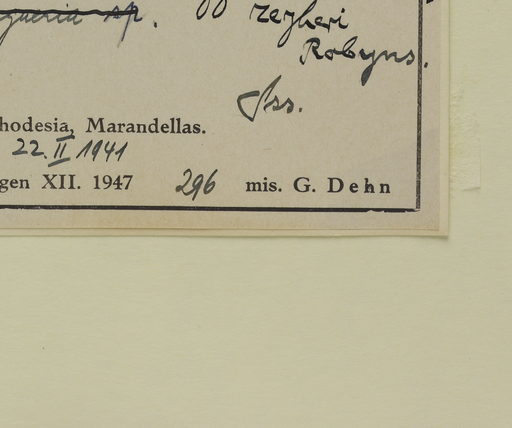 sp. zeyheri
Robyns.
Iss.
hodesia, Marandellas.
22. II 1941
gen XII. 1947 296 mis. G. Dehn